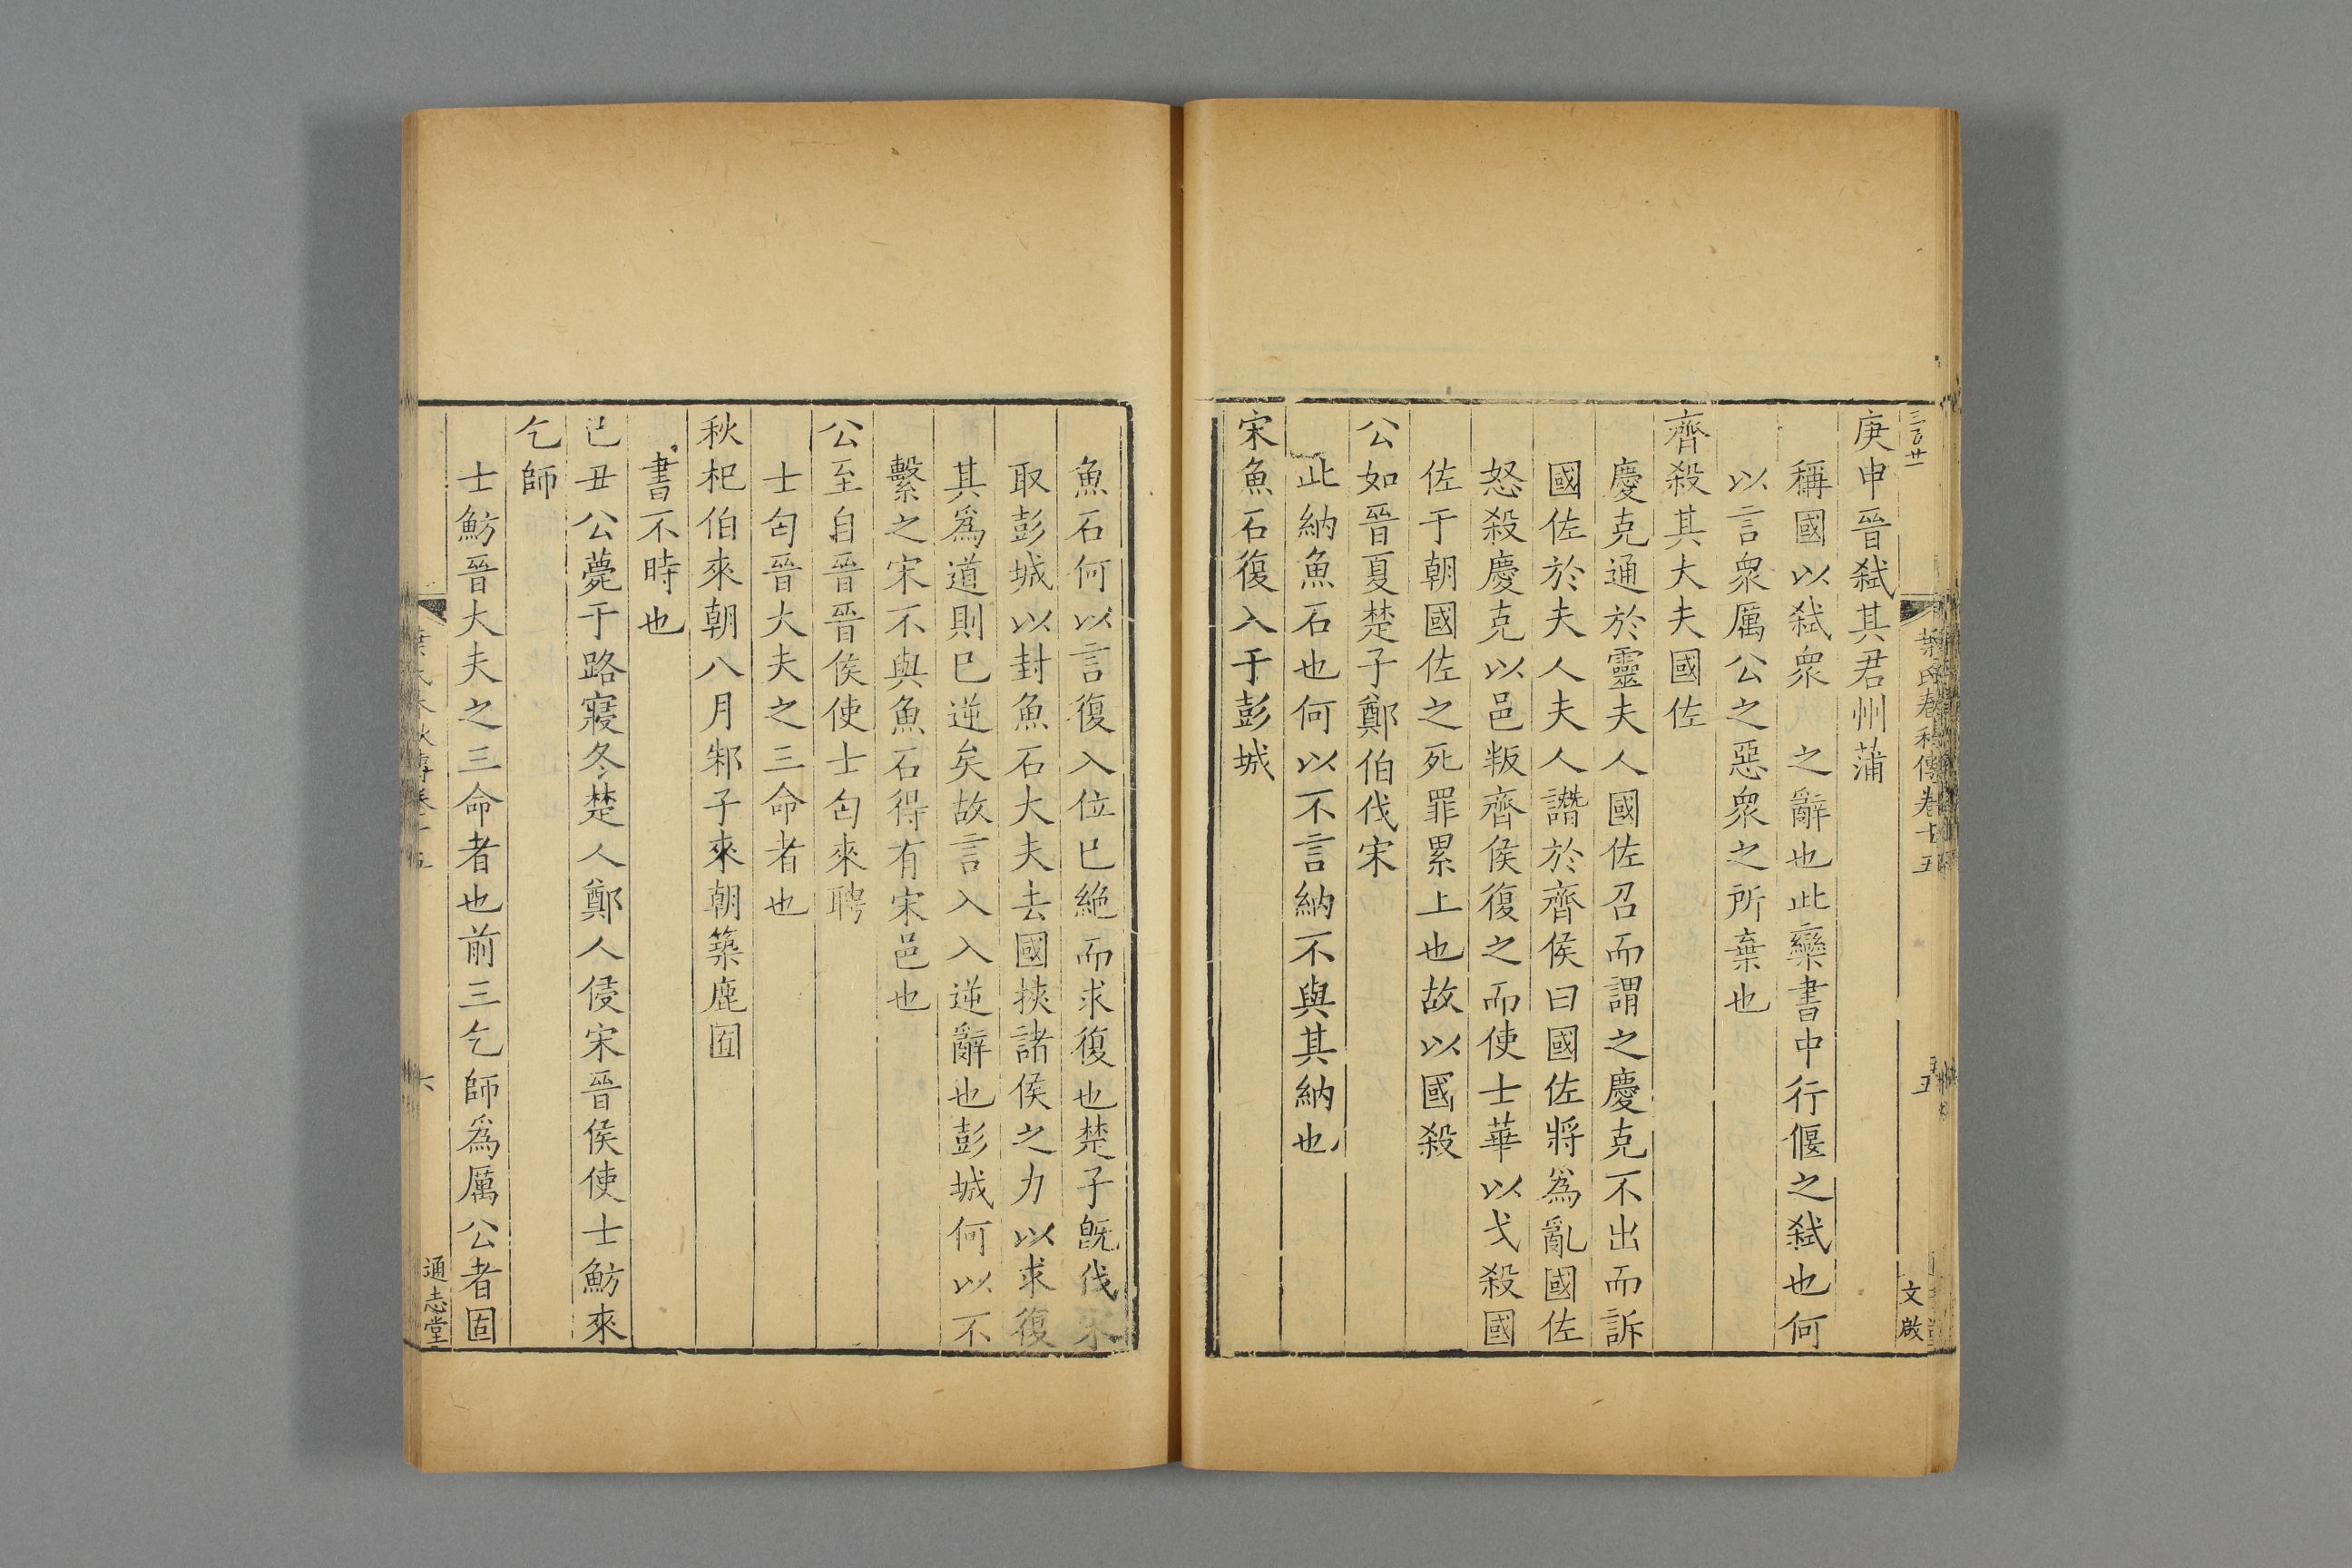 三百廿一
葉氏春秋傳卷十五
五
文啟
庚申晉弑其君州蒲
稱國以弑衆 之辭也此欒書中行偃之弑也何
以言衆厲公之惡衆之所棄也
齊殺其大夫國佐
慶克通於靈夫人國佐召而謂之慶克不出而訴
國佐於夫人夫人譖於齊侯曰國佐將爲亂國佐
怒殺慶克以邑叛齊侯復之而使士華以戈殺國
佐于朝國佐之死罪累上也故以國殺
公如晉夏楚子鄭伯伐宋
此納魚石也何以不言納不與其納也
宋魚石復入于彭城
魚石何以言復入位已絶而求復也楚子旣伐宋
取彭城以封魚石大夫去國挾諸侯之力以求復
其爲道則已逆矣故言入入逆辭也彭城何以不
繫之宋不與魚石得有宋邑也
公至自晉晉侯使士匄來聘
士匄晉大夫之三命者也
秋杞伯來朝八月邾子來朝築鹿囿
書不時也
己丑公薨于路寢冬楚人鄭人侵宋晉侯使士魴來
乞師
士魴晉大夫之三命者也前三乞師爲厲公者固
葉氏春秋傳卷十五
六
通志堂